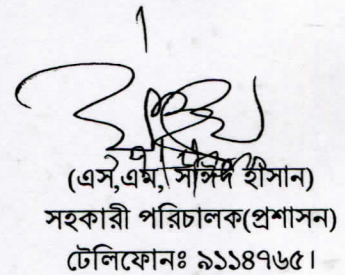 (এস,এম, সাঈদ হাসান)
সহকারী পরিচালক(প্রশাসন)
টেলিফোনঃ ৯১১৪৭৬৫।